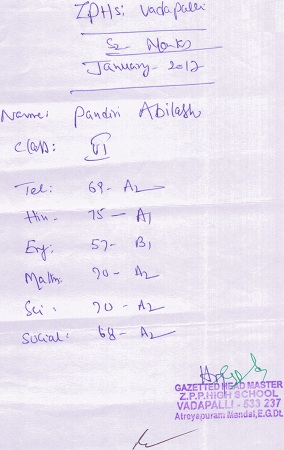 ZPHS: Vadapalli
S2 Marks
January - 2012
Name: Pandiri Abilash
Class: VI
Tel: 69 - A2
Hin - 75 - A1
Eng: 57 - B1
Maths: 70 - A2
Sci: 70 - A2
Social: 68 - A2
GAZETTED HEAD MASTER
Z.P.P.HIGH SCHOOL
VADAPALLI - 533 237
Atreyapuram Mandal,E.G.Dt.